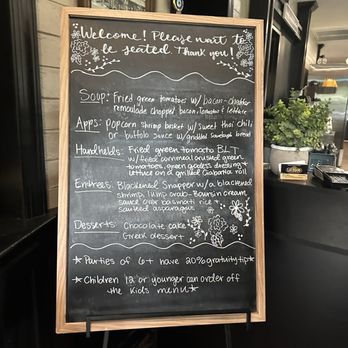 Welcome! Please wait to
be seated. Thank you!
Soup: Fried green tomatoes w/ bacon-cheddar
remoulade chopped bacon, tomato & lettuce
Apps: popcorn shrimp basket w/ sweet thai chili
or buffalo sauce w/ grilled bread
Handhelds: Fried green tomato BLT
w/ fried cornmeal crusted green
tomatoes, green goddess dressing
lettuce on a grilled ciabatta roll
Entrees: Blackened Snapper w/ a blackened
shrimp, lump crab-Boursin cream
sauce over basmati rice
sauteed asparagus
Desserts: Chocolate cake
Greek dessert
*Parties of 6+ have 20% gratuity tip*
*Children 12 or younger can order off
the kids menu*